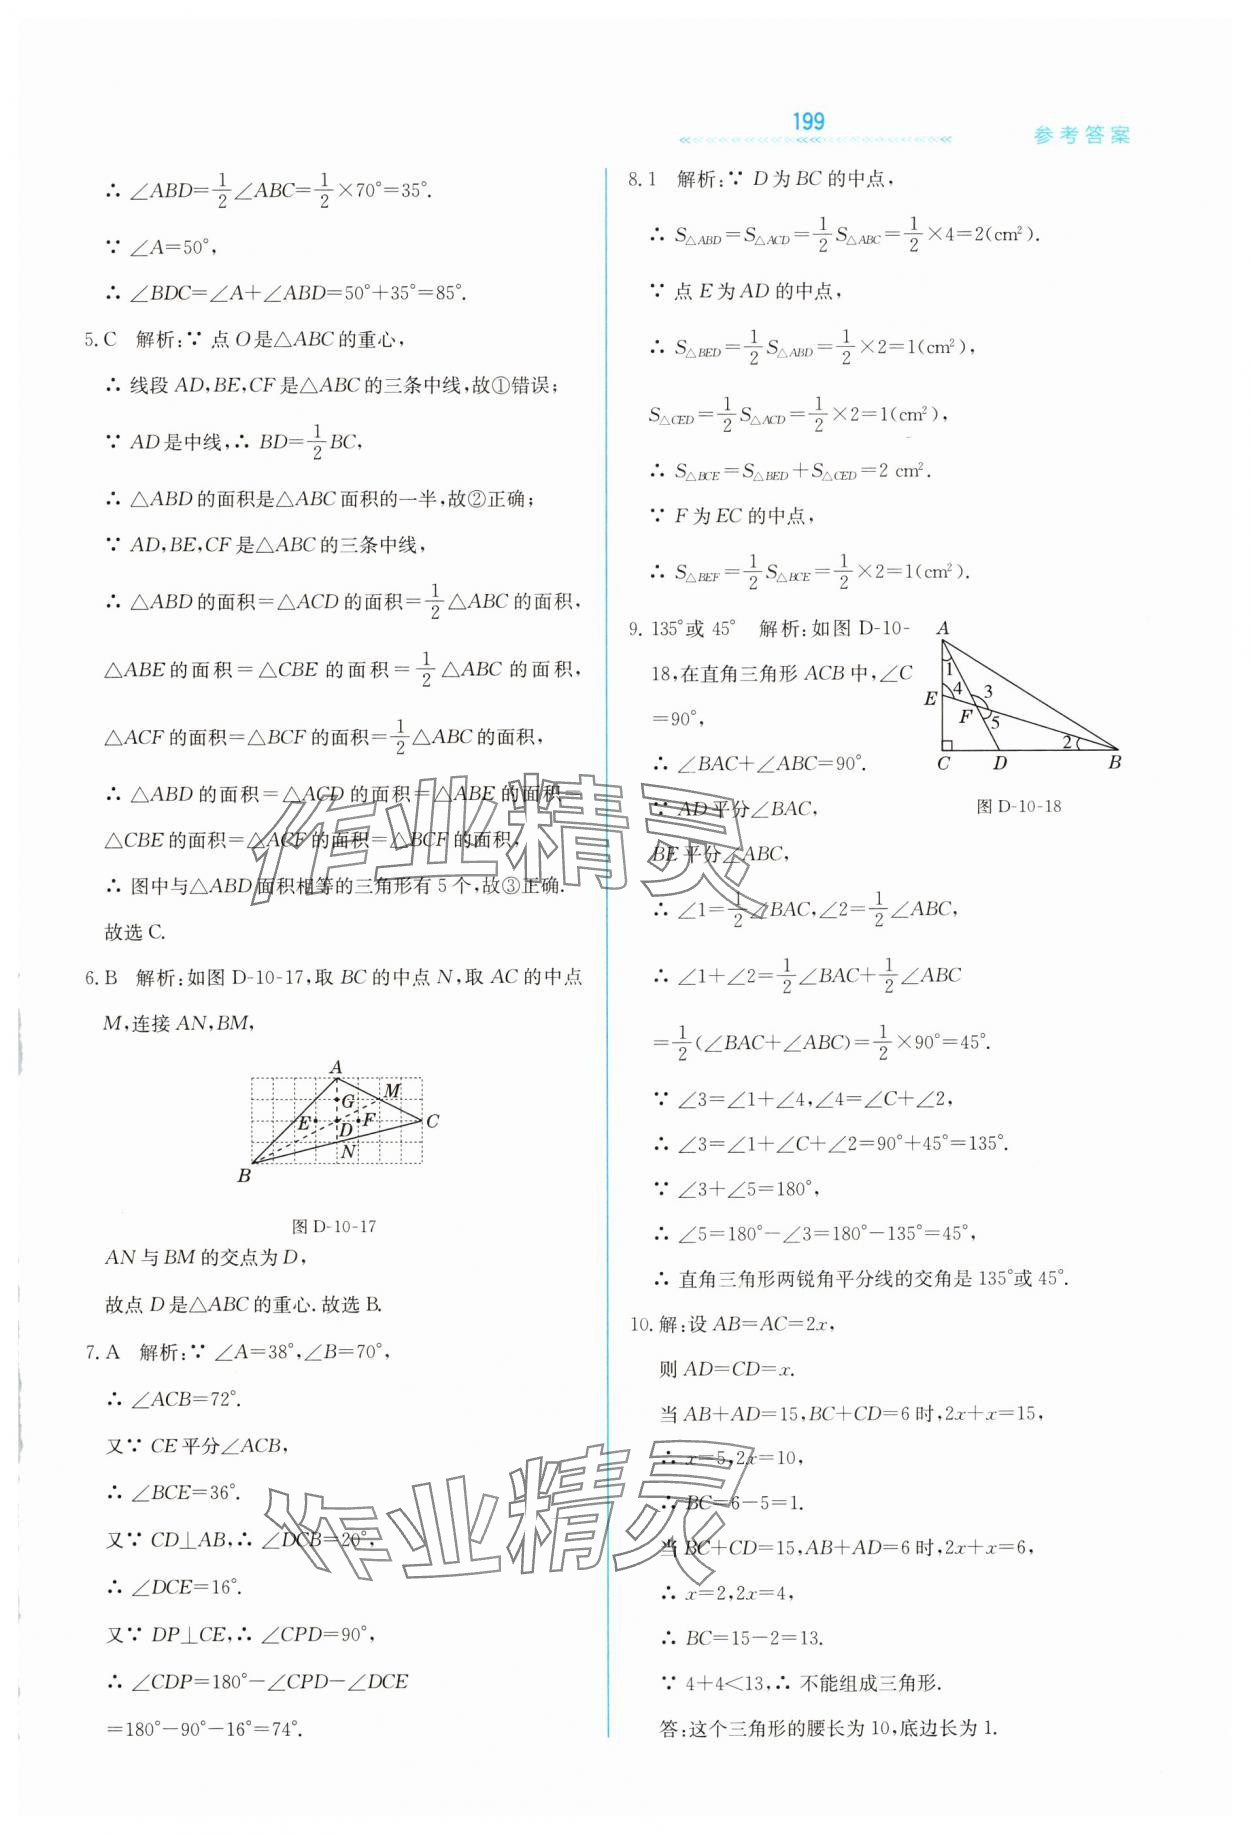 199
参考答案
∴ ∠ABD=1/2∠ABC=1/2×70°=35°.
∵ ∠A=50°,
∴ ∠BDC=∠A+∠ABD=50°+35°=85°.
5. C 解析:∵ 点O是△ABC的重心,
∴ 线段AD,BE,CF是△ABC的三条中线,故①错误;
∵ AD是中线,∴ BD=1/2BC,
∴ △ABD的面积是△ABC面积的一半,故②正确;
∵ AD,BE,CF是△ABC的三条中线,
∴ △ABD的面积=△ACD的面积=1/2△ABC的面积,
△ABE的面积=△CBE的面积=1/2△ABC的面积,
△ACF的面积=△BCF的面积=1/2△ABC的面积,
∴ △ABD的面积=△ACD的面积=△ABE的面积=
△CBE的面积=△ACF的面积=△BCF的面积,
∴ 图中与△ABD面积相等的三角形有5个,故③正确.
故选C.
6. B 解析:如图D-10-17,取BC的中点N,取AC的中点
M,连接AN,BM,
A
G
M
E
D
F
C
N
B
图D-10-17
AN与BM的交点为D,
故点D是△ABC的重心.故选B.
7. A 解析:∵ ∠A=38°,∠B=70°,
∴ ∠ACB=72°.
又∵ CE平分∠ACB,
∴ ∠BCE=36°.
又∵ CD⊥AB,∴ ∠DCB=20°,
∴ ∠DCE=16°.
又∵ DP⊥CE,∴ ∠CPD=90°,
∴ ∠CDP=180°-∠CPD-∠DCE
=180°-90°-16°=74°.
8. 1 解析:∵ D为BC的中点,
∴ S△ABD=S△ACD=1/2S△ABC=1/2×4=2(cm²).
∵ 点E为AD的中点,
∴ S△BED=1/2S△ABD=1/2×2=1(cm²),
S△CED=1/2S△ACD=1/2×2=1(cm²),
∴ S△BCE=S△BED+S△CED=2 cm².
∵ F为EC的中点,
∴ S△BEF=1/2S△BCE=1/2×2=1(cm²).
9. 135°或45° 解析:如图D-10-
18,在直角三角形ACB中,∠C
=90°,
∴ ∠BAC+∠ABC=90°.
∵ AD平分∠BAC,
BE平分∠ABC,
A
1
E 4 3
F 5
2
C D B
图D-10-18
∴ ∠1=1/2∠BAC,∠2=1/2∠ABC,
∴ ∠1+∠2=1/2∠BAC+1/2∠ABC
=1/2(∠BAC+∠ABC)=1/2×90°=45°.
∵ ∠3=∠1+∠4,∠4=∠C+∠2,
∴ ∠3=∠1+∠C+∠2=90°+45°=135°.
∵ ∠3+∠5=180°,
∴ ∠5=180°-∠3=180°-135°=45°,
∴ 直角三角形两锐角平分线的交角是135°或45°.
10. 解:设AB=AC=2x,
则AD=CD=x.
当AB+AD=15,BC+CD=6时,2x+x=15,
∴ x=5,2x=10,
∴ BC=6-5=1.
当BC+CD=15,AB+AD=6时,2x+x=6,
∴ x=2,2x=4,
∴ BC=15-2=13.
∵ 4+4<13,∴ 不能组成三角形.
答:这个三角形的腰长为10,底边长为1.
作业精灵
作业精灵